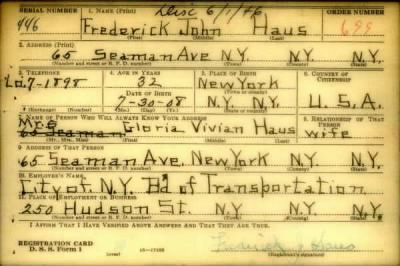 SERIAL NUMBER 1. NAME (Print) Disc 6/1/46 ORDER NUMBER
446 Frederick John Haus 699
(First) (Middle) (Last)
2. ADDRESS (Print)
65 Seaman Ave N.Y. N.Y. N.Y.
(Number and street or R. F. D. number) (Town) (County) (State)
3. TELEPHONE 4. AGE IN YEARS 5. PLACE OF BIRTH 6. COUNTRY OF CITIZENSHIP
Lo.7-1898 32 New York
DATE OF BIRTH (Town or county)
7-30-08 N.Y. N.Y. U.S.A.
(Exchange) (Number) (Mo.) (Day) (Yr.) (State or country)
7. NAME OF PERSON WHO WILL ALWAYS KNOW YOUR ADDRESS 8. RELATIONSHIP OF THAT PERSON
Mrs
65 Seaman Gloria Vivian Haus wife
(Mr., Mrs., Miss) (First) (Middle) (Last)
9. ADDRESS OF THAT PERSON
65 Seaman Ave, New York N.Y. N.Y.
(Number and street or R. F. D. number) (Town) (County) (State)
10. EMPLOYER'S NAME
City of N.Y. Bd of Transportation
11. PLACE OF EMPLOYMENT OR BUSINESS
250 Hudson St. N.Y. N.Y. N.Y.
(Number and street or R. F. D. number) (Town) (County) (State)
I AFFIRM THAT I HAVE VERIFIED ABOVE ANSWERS AND THAT THEY ARE TRUE.
REGISTRATION CARD
D. S. S. Form 1 (over) 16-17105 Frederick J Haus
(Registrant's signature)